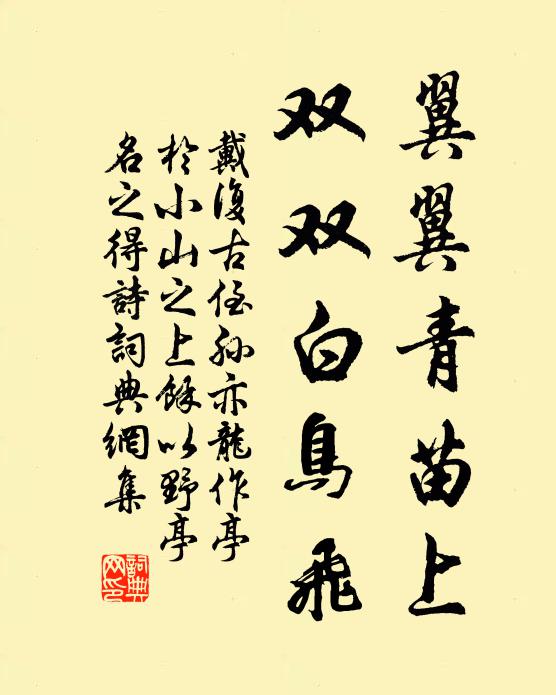 翼翼青苗上
双双白鳥飛
戴復古侄孙亦龍作亭
於小山之上餘以野亭
名之得詩詞典網集
詞典网印